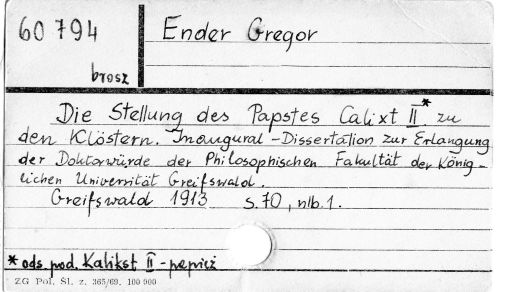 60 794
Ender Gregor
brosz
Die Stellung des Papstes Calixt II* zu
den Klöstern. Inaugural-Dissertation zur Erlangung
der Doktorwürde der Philosophischen Fakultät der König-
lichen Universität Greifswald.
Greifswald 1913 S. 70, nlb. 1.
* ods. pod. Kalikst II - papież
ZG Pol. Śl. z. 365/69. 100 000